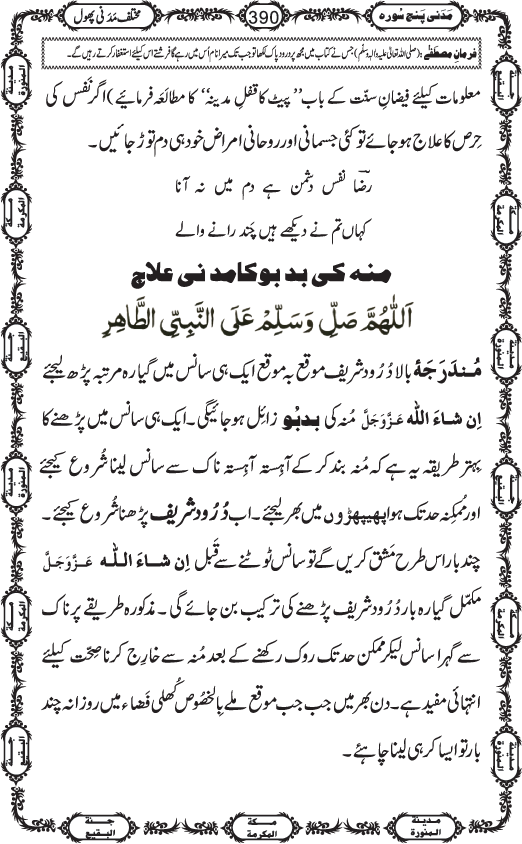 مَدَنی پنج سُورہ
390
مختلف مَدَنی پھول
فرمانِ مصطَفٰے: (صلی اللہ تعالٰی علیہ والہٖ وسلّم) جس نے کتاب میں مجھ پر درود پاک لکھا تو جب تک میرا نام اُس میں رہے گا فرشتے اس کیلئے استغفار کرتے رہیں گے۔
معلومات کیلئے فیضانِ سنّت کے باب ’’پیٹ کا قفلِ مدینہ‘‘ کا مطالَعہ فرمائیے) اگر نَفس کی
حِرص کا علاج ہو جائے تو کئی جسمانی اور روحانی امراض خود ہی دم توڑ جائیں۔
رضاؔ نفس دشمن ہے دم میں نہ آنا
کہاں تم نے دیکھے ہیں چَند رانے والے
منہ کی بدبو کا مدنی علاج
اَللّٰهُمَّ صَلِّ وَسَلِّمْ عَلَى النَّبِيِّ الطَّاهِرِ
مُندَرَجَۂ بالا دُرُود شریف موقع بہ موقع ایک ہی سانس میں گیارہ مرتبہ پڑھ لیجئے
اِن شاءَ اللّٰہ عَزَّوَجَلَّ مُنہ کی بدبُو زائل ہو جائیگی۔ ایک ہی سانس میں پڑھنے کا
بہتر طریقہ یہ ہے کہ مُنہ بند کر کے آہستہ آہستہ ناک سے سانس لینا شُروع کیجئے
اور مُمکِنہ حد تک ہوا پھیپھڑوں میں بھر لیجئے۔ اب دُرُود شریف پڑھنا شُروع کیجئے۔
چند بار اس طرح مشق کریں گے تو سانس ٹوٹنے سے قَبل اِن شاءَ اللّٰہ عَزَّوَجَلَّ
مکمَّل گیارہ بار دُرُود شریف پڑھنے کی ترکیب بن جائے گی۔ مذکورہ طریقے پر ناک
سے گہرا سانس لیکر ممکن حد تک روک رکھنے کے بعد مُنہ سے خارِج کرنا صِحّت کیلئے
انتہائی مفید ہے۔ دن بھر میں جب جب موقع ملے بِالخصُوص کُھلی فَضاء میں روزانہ چند
بار تو ایسا کر ہی لینا چاہئے۔
مدینۃ المنورۃ
مکۃ المکرمۃ
جنۃ البقیع
مدینۃ المنورۃ
مکۃ المکرمۃ
جنۃ البقیع